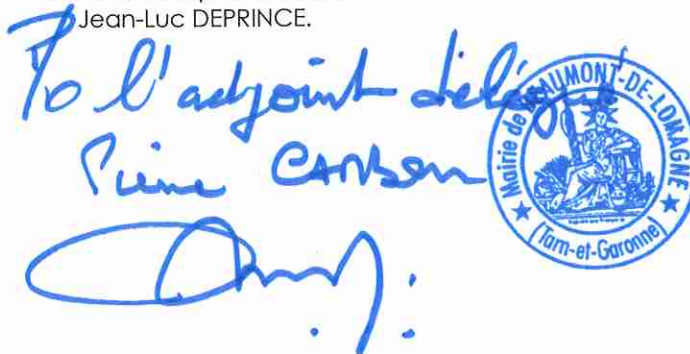 Jean-Luc DEPRINCE.
Po l'adjoint délégué
Pierre
Mairie de BEAUMONT-DE-LOMAGNE
(Tarn-et-Garonne)